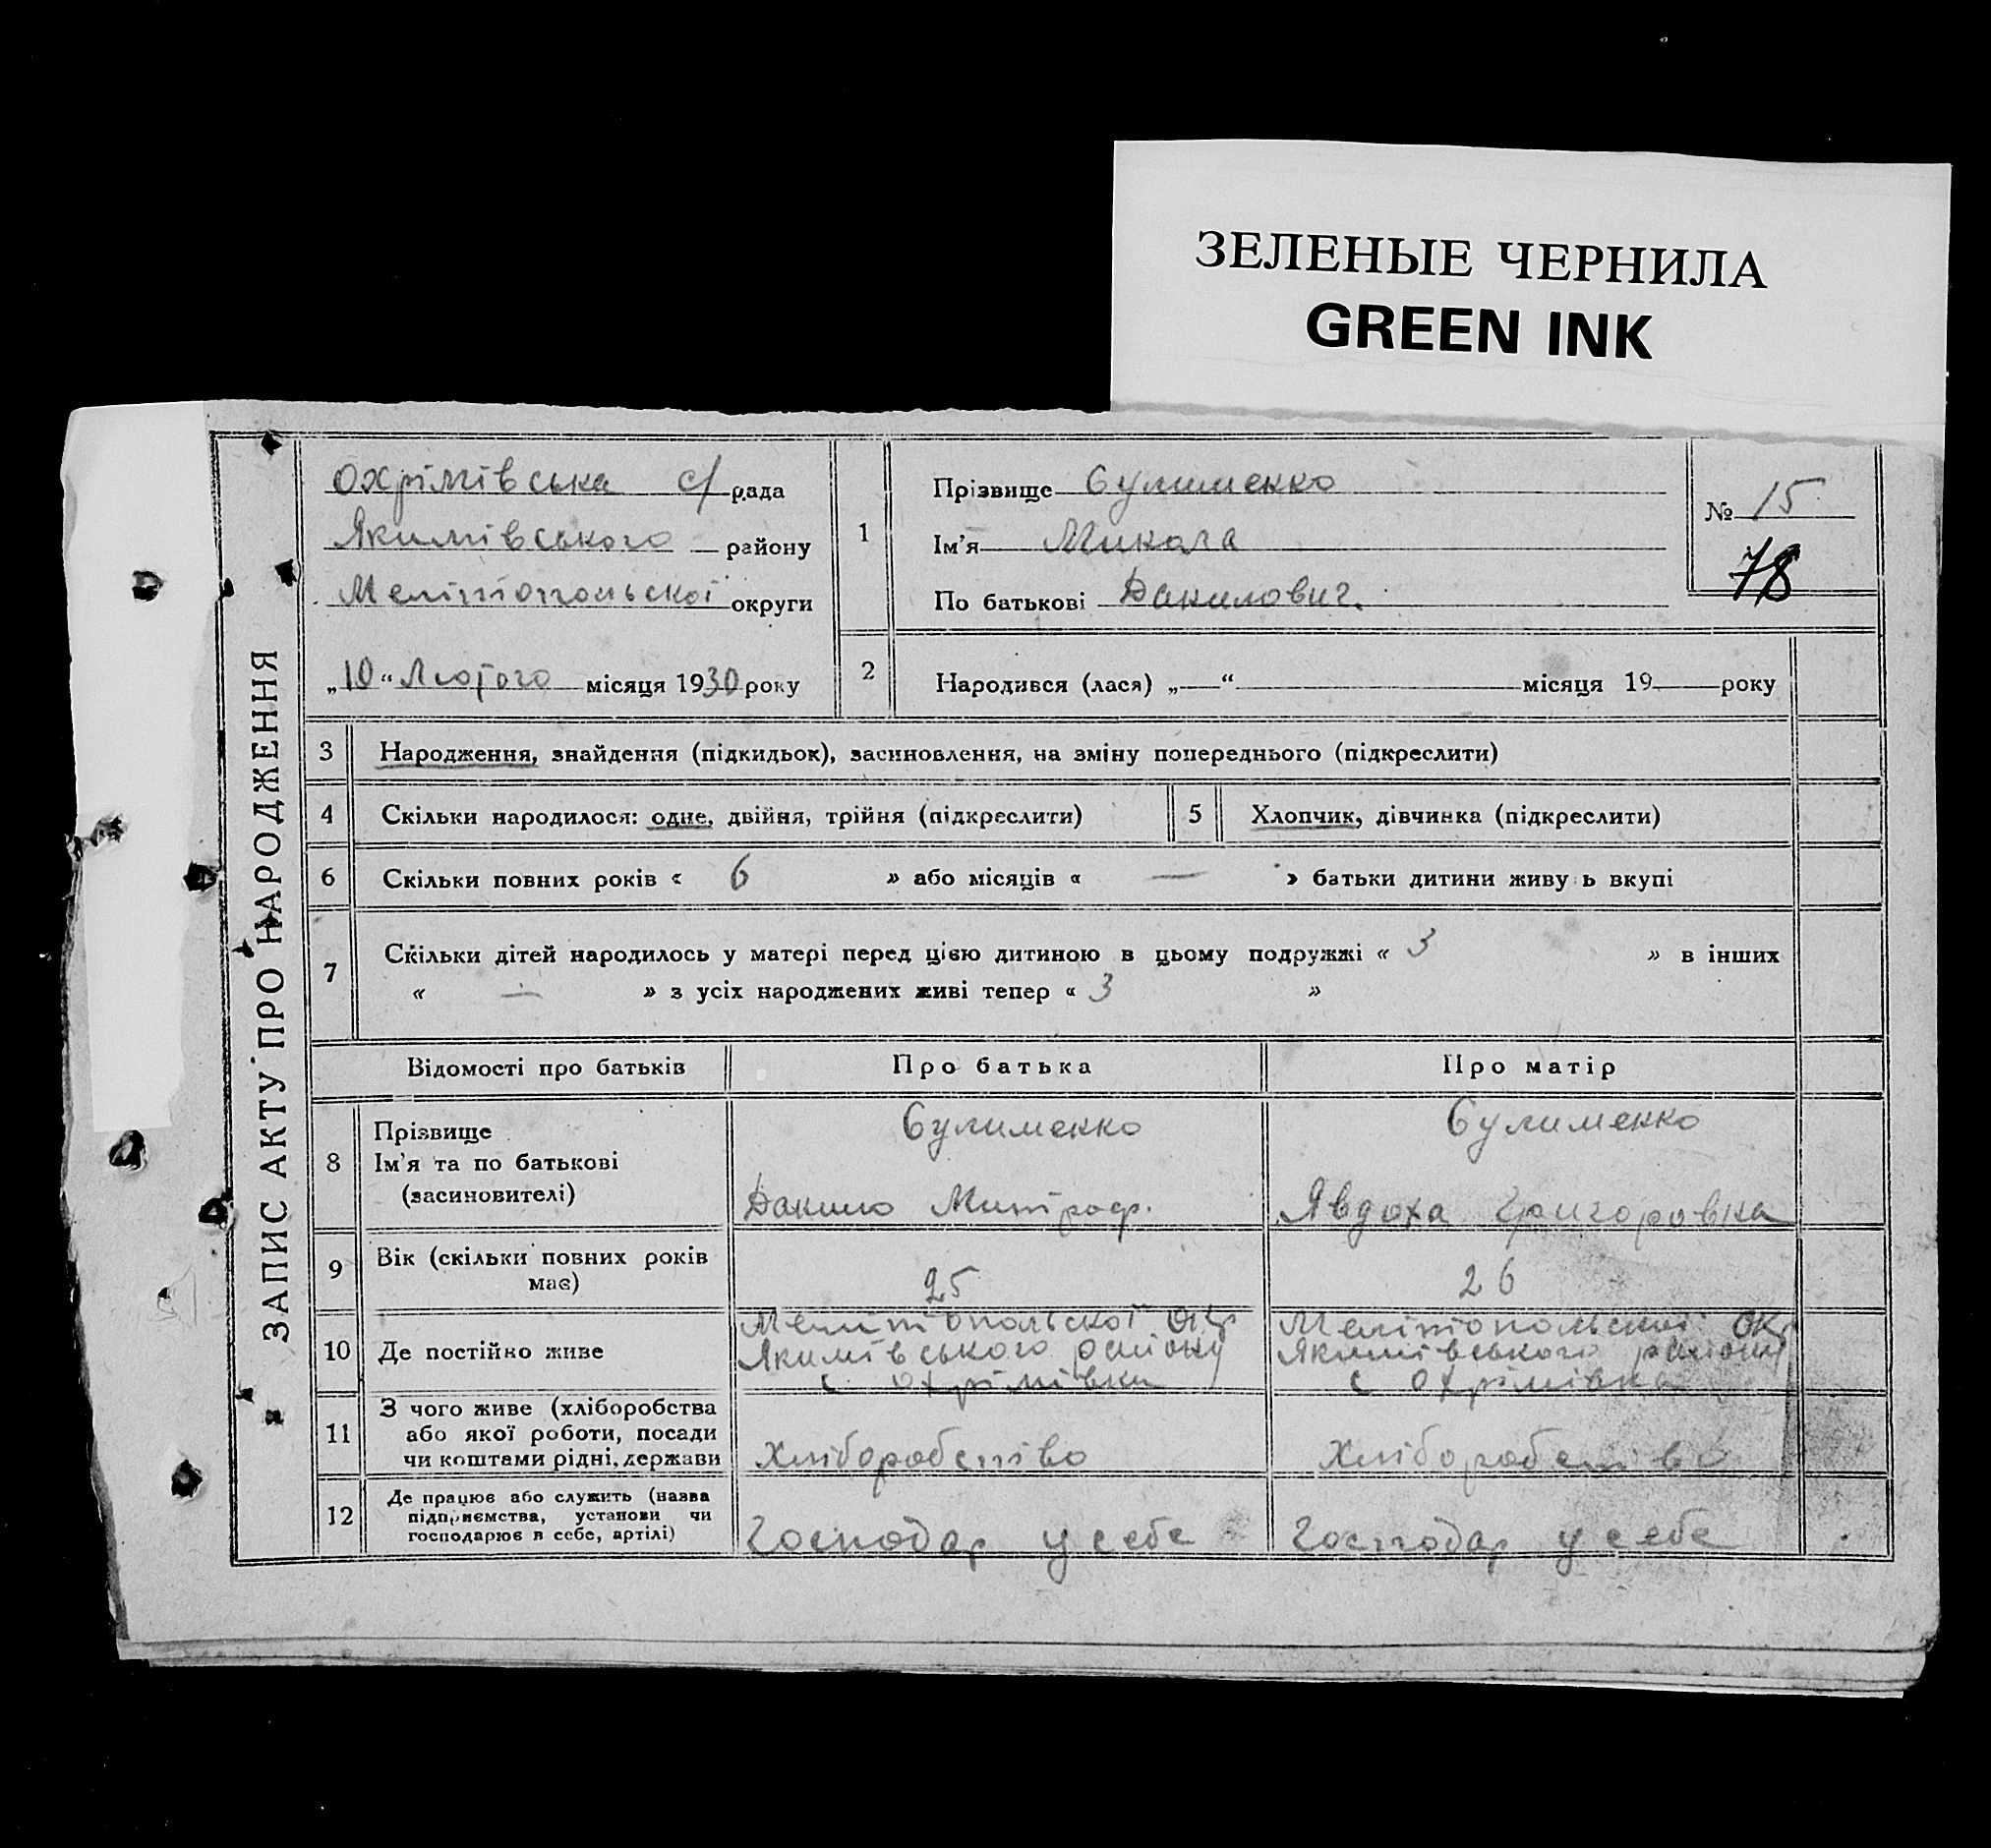 ЗЕЛЕНЫЕ ЧЕРНИЛА
GREEN INK
ЗАПИС АКТУ ПРО НАРОДЖЕННЯ
Охрімівська с/рада
Якимівського району
Мелітопольської округи
„10“ Лютого місяця 1930 року
1
Прізвище Сулименко
Ім'я Микола
По батькові Данилович.
№ 15
78
2 Народився (лася) „—“ місяця 19 року
3 Народження, знайдення (підкидьок), засиновлення, на зміну попереднього (підкреслити)
4 Скільки народилося: одне, двійня, трійня (підкреслити) 5 Хлопчик, дівчинка (підкреслити)
6 Скільки повних років « 6 » або місяців « — » батьки дитини живу ь вкупі
7 Скільки дітей народилось у матері перед цією дитиною в цьому подружжі « 3 » в інших
« — » з усіх народжених живі тепер « 3 »
Відомості про батьків Про батька Про матір
8 Прізвище
Ім'я та по батькові
(засиновителі)
Сулименко
Данило Митроф.
Сулименко
Явдоха Григоровна
9 Вік (скільки повних років
має)
25
26
10 Де постійно живе
Мелітопольської окр
Якимівського району
с. Охрімівка
Мелітопольської окр
Якимівського району
с Охрімівка
11 З чого живе (хліборобства
або якої роботи, посади
чи коштами рідні, держави
Хліборобство
Хліборобство
12 Де працює або служить (назва
підприємства, установи чи
господарює в себе, артілі)
Господар у себе
Господар у себе